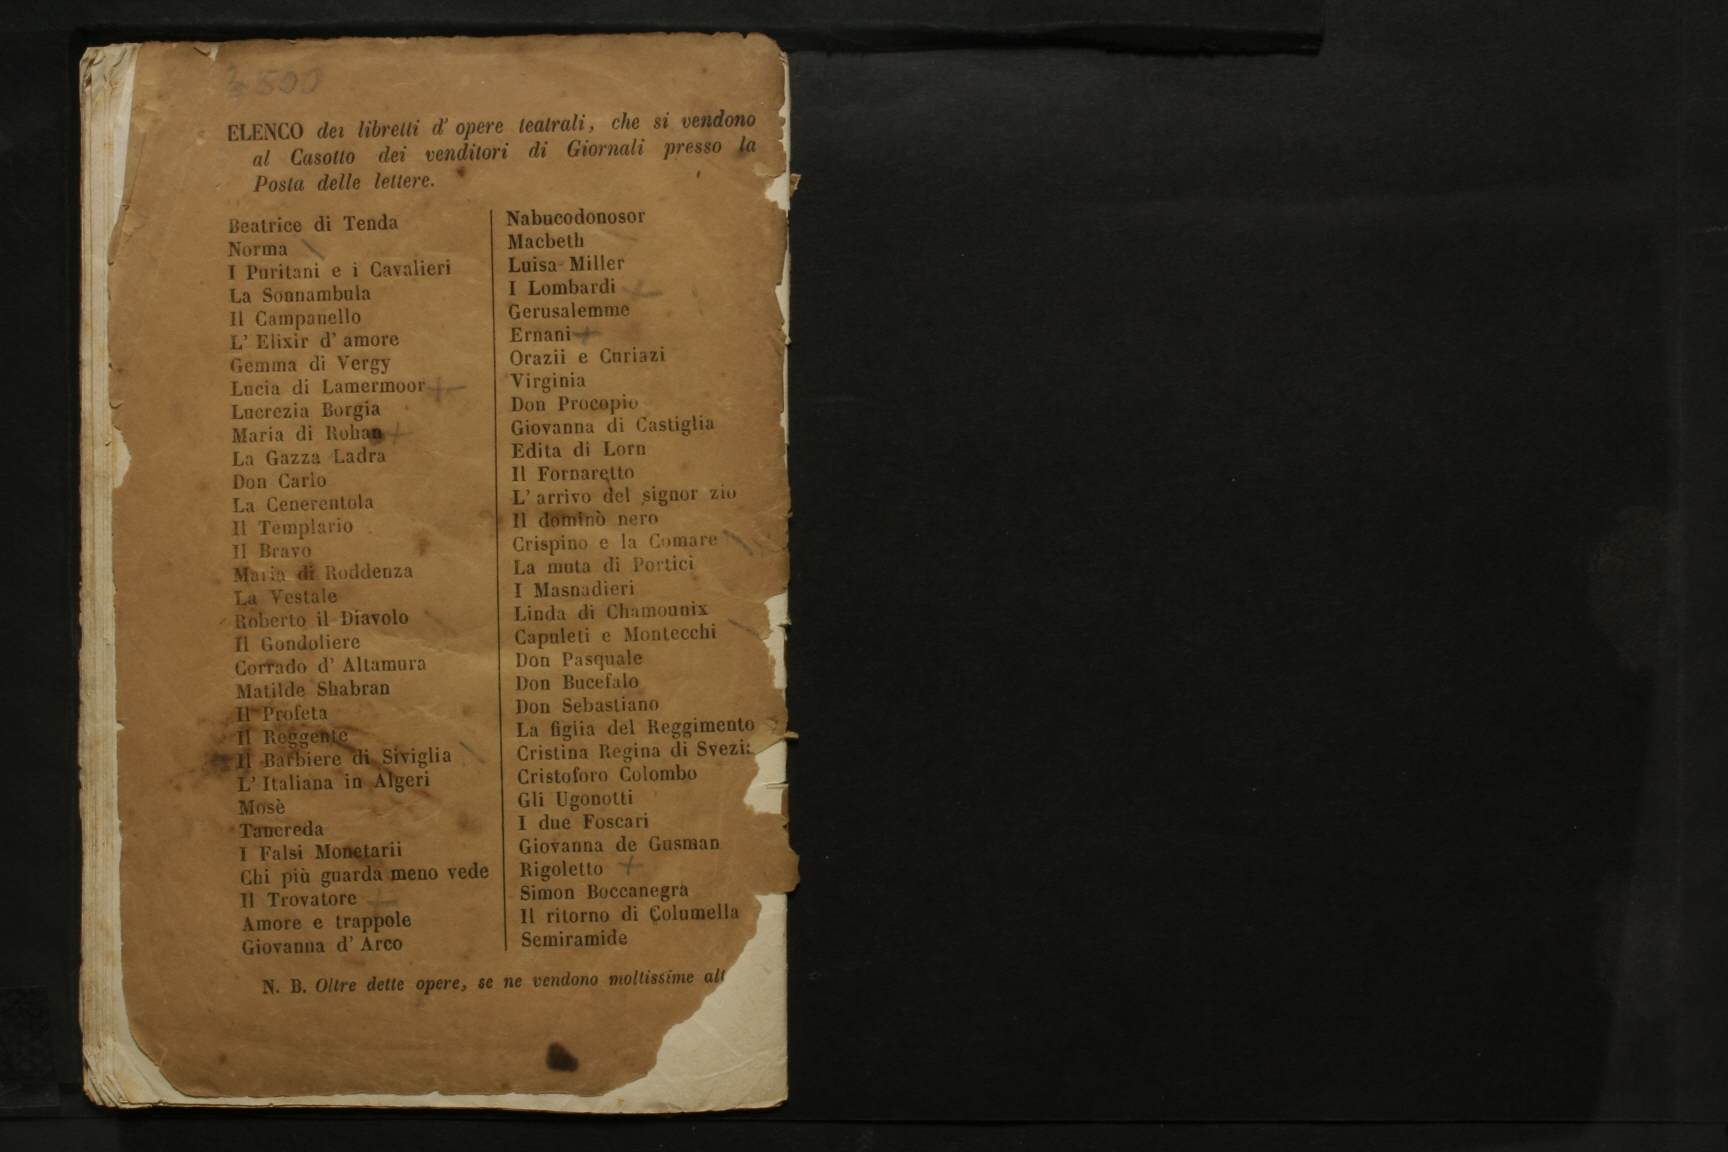 3500
ELENCO dei libretti d' opere teatrali, che si vendono
al Casotto dei venditori di Giornali presso la
Posta delle lettere.
Beatrice di Tenda
Norma
I Puritani e i Cavalieri
La Sonnambula
Il Campanello
L' Elixir d' amore
Gemma di Vergy
Lucia di Lamermoor
Lucrezia Borgia
Maria di Rohan
La Gazza Ladra
Don Carlo
La Cenerentola
Il Templario
Il Bravo
Maria di Roddenza
La Vestale
Roberto il Diavolo
Il Gondoliere
Corrado d' Altamura
Matilde Shabran
Il Profeta
Il Reggente
Il Barbiere di Siviglia
L' Italiana in Algeri
Mosè
Tancreda
I Falsi Monetarii
Chi più guarda meno vede
Il Trovatore
Amore e trappole
Giovanna d' Arco
Nabucodonosor
Macbeth
Luisa Miller
I Lombardi
Gerusalemme
Ernani
Orazii e Curiazi
Virginia
Don Procopio
Giovanna di Castiglia
Edita di Lorn
Il Fornaretto
L' arrivo del signor zio
Il dominò nero
Crispino e la Comare
La muta di Portici
I Masnadieri
Linda di Chamounix
Capuleti e Montecchi
Don Pasquale
Don Bucefalo
Don Sebastiano
La figlia del Reggimento
Cristina Regina di Svezi
Cristoforo Colombo
Gli Ugonotti
I due Foscari
Giovanna de Gusman
Rigoletto
Simon Boccanegra
Il ritorno di Columella
Semiramide
N. B. Oltre dette opere, se ne vendono moltissime alt